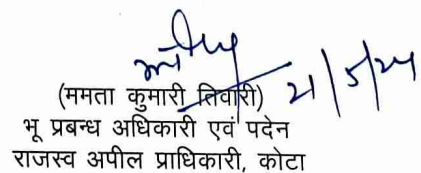 21/5/24
(ममता कुमारी तिवारी)
भू प्रबन्ध अधिकारी एवं पदेन
राजस्व अपील प्राधिकारी, कोटा